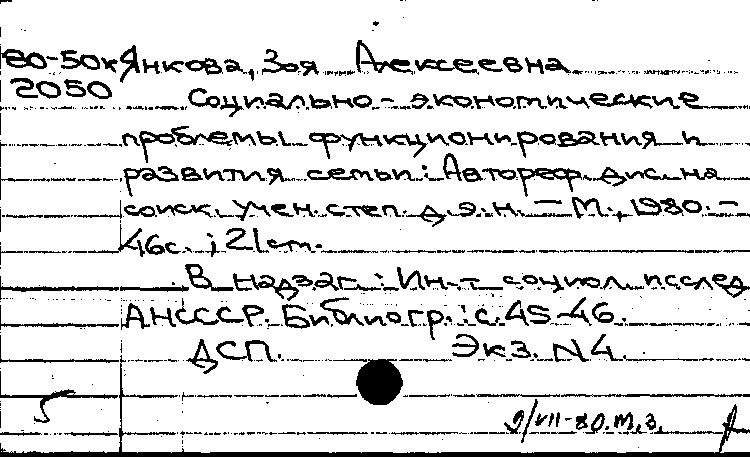 80-50к Янкова, Зоя Алексеевна
2050 Социально-экономические
проблемы функционирования и
развития семьи: Автореф. дис. на
соиск. учен. степ. д.э.н. — М., 1980. —
46с.; 21см.
В надзаг.: Ин-т социол. исслед
АНСССР. Библиогр.: с.45-46.
ДСП. Экз. N4.
5
9/VII-80. М.З.